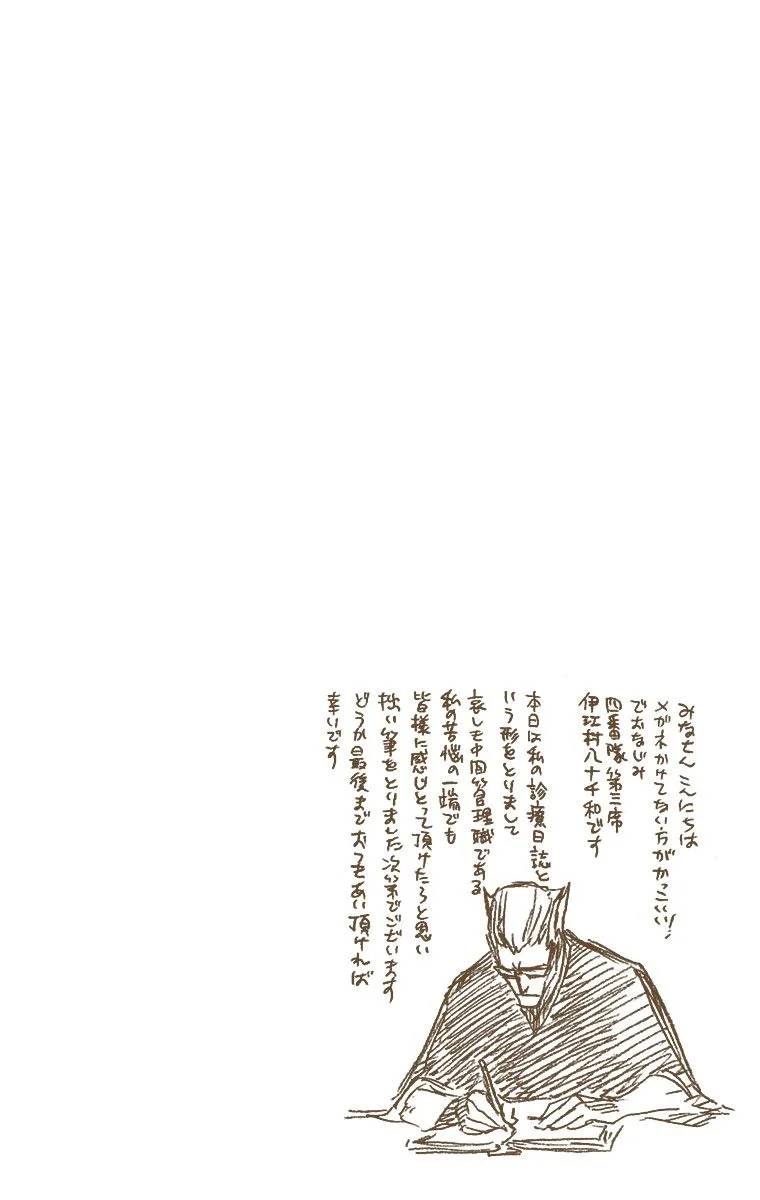 みなさん こんにちは
メガネかけてない方がかっこいい!
でおなじみ
四番隊第三席
伊江村八十千和です
本日は私の診療日誌と
いう形をとりまして
哀しき中間管理職である
私の苦悩の一端でも
皆様に感じとって頂けたらと思い
拙い筆をとりました次第でございます
どうか最後までおつきあい頂ければ
幸いです